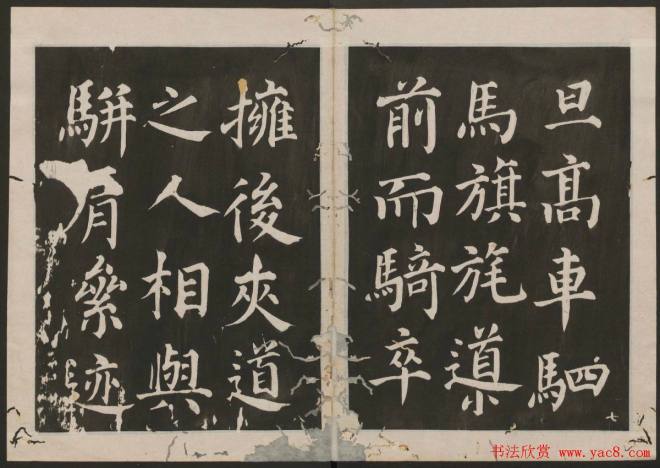 旦髙車駟
馬旗旄導
前而騎卒
擁後夾道
之人相與
駢肩絫迹
七
书法欣赏 www.yac8.com